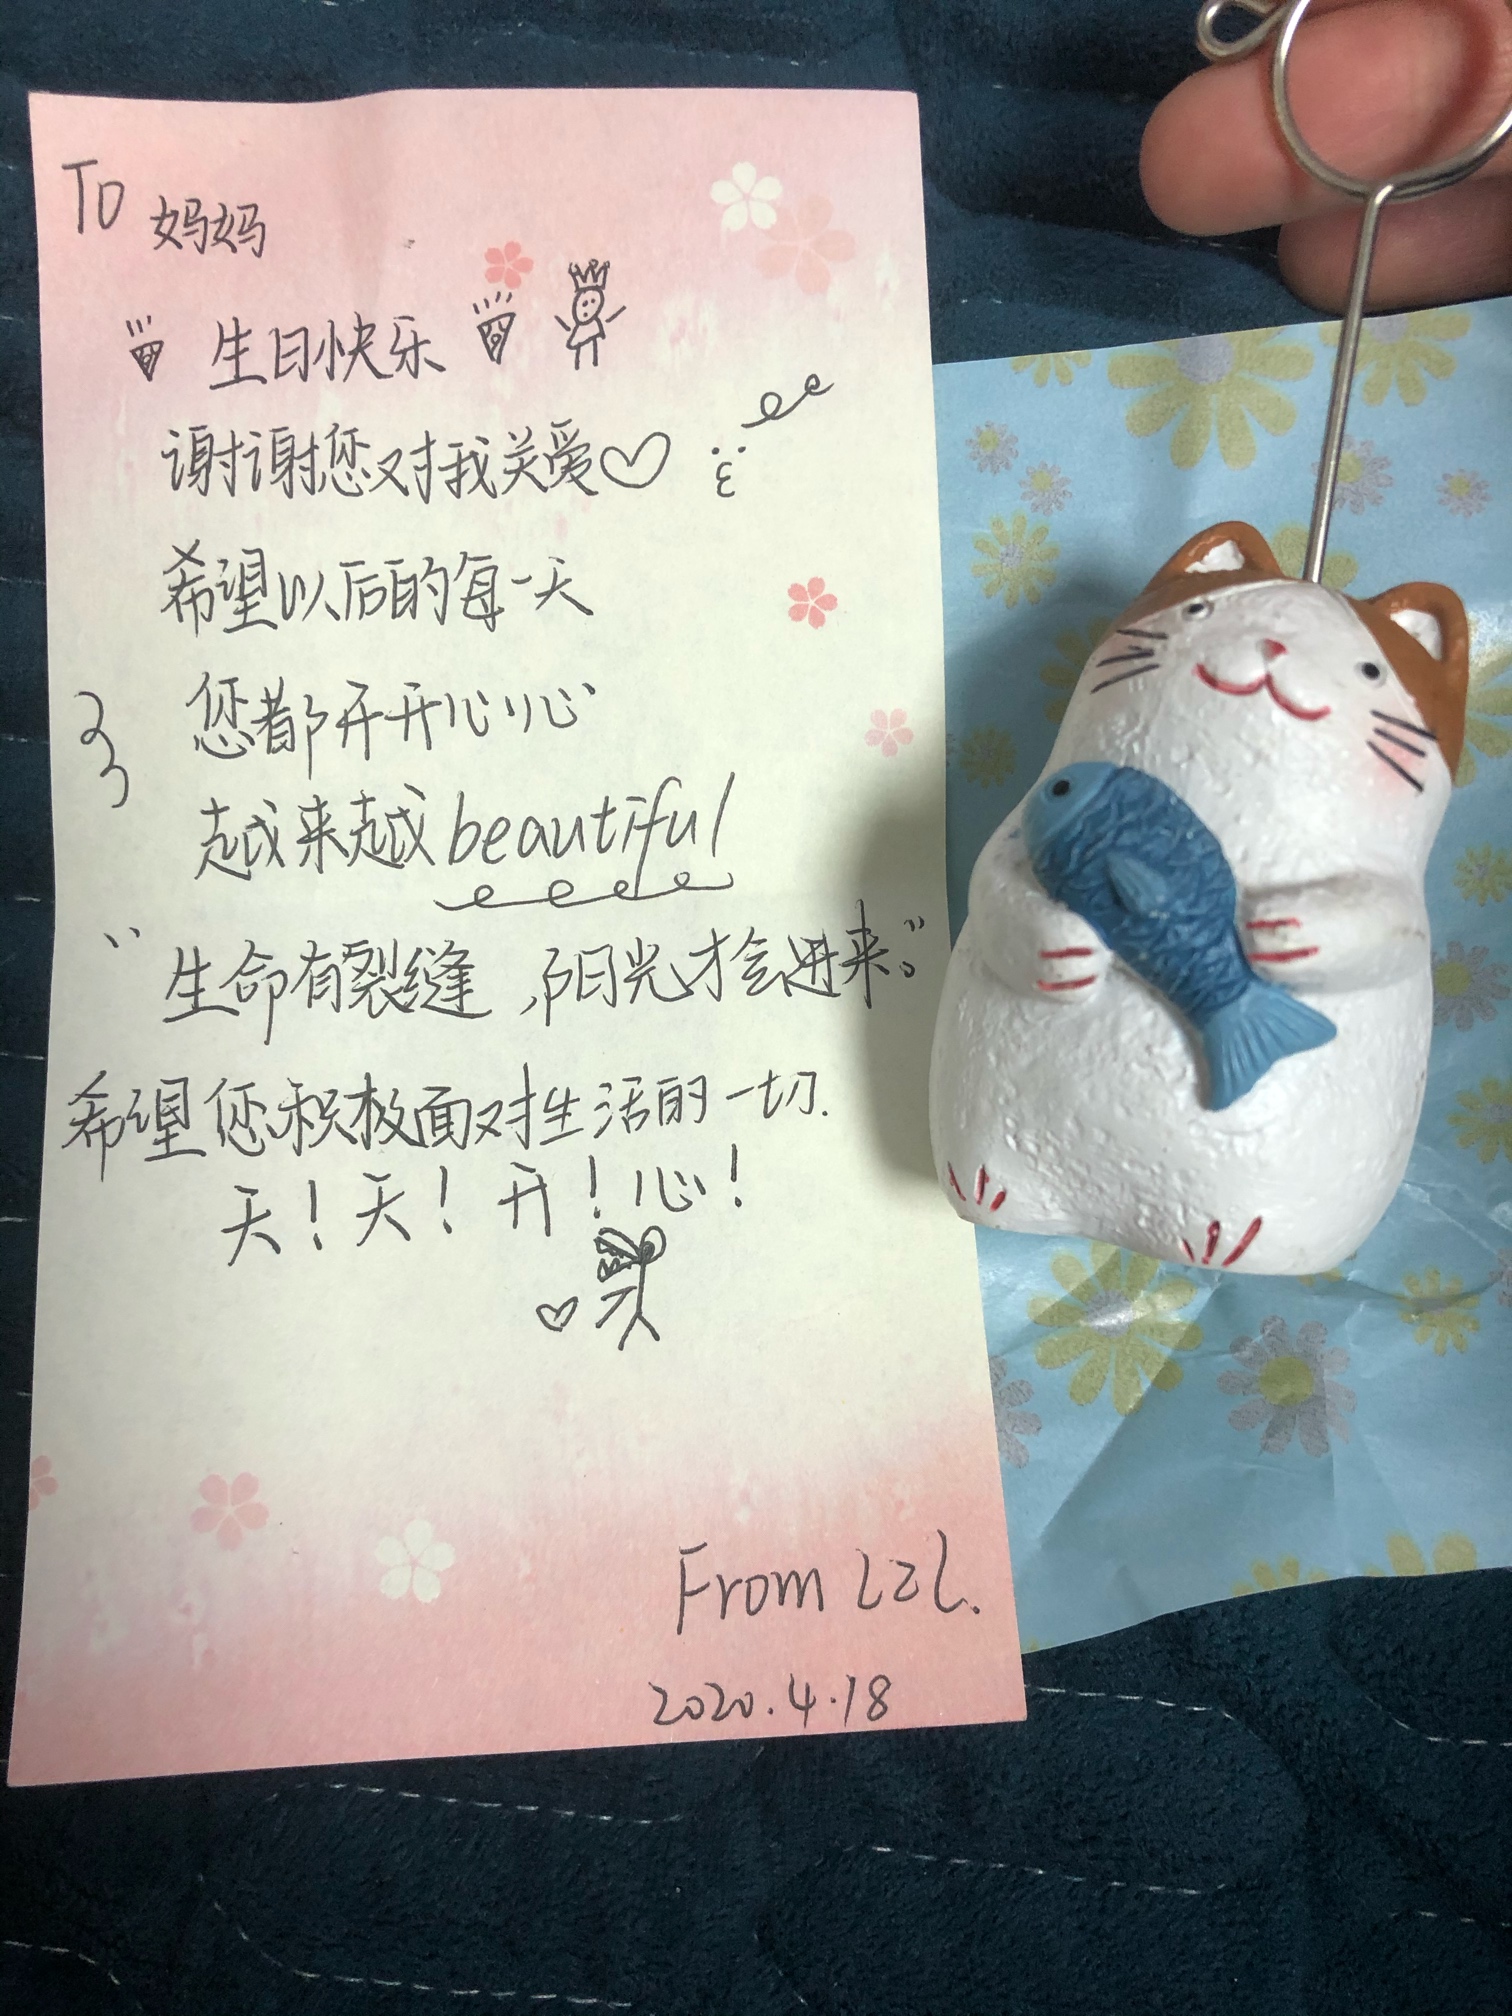 To 妈妈
生日快乐
谢谢您对我关爱♡
希望以后的每一天
您都开开心心
越来越beautiful
“生命有裂缝，阳光才会进来。”
希望您积极面对生活的一切.
天！天！开！心！
From LZL.
2020.4.18